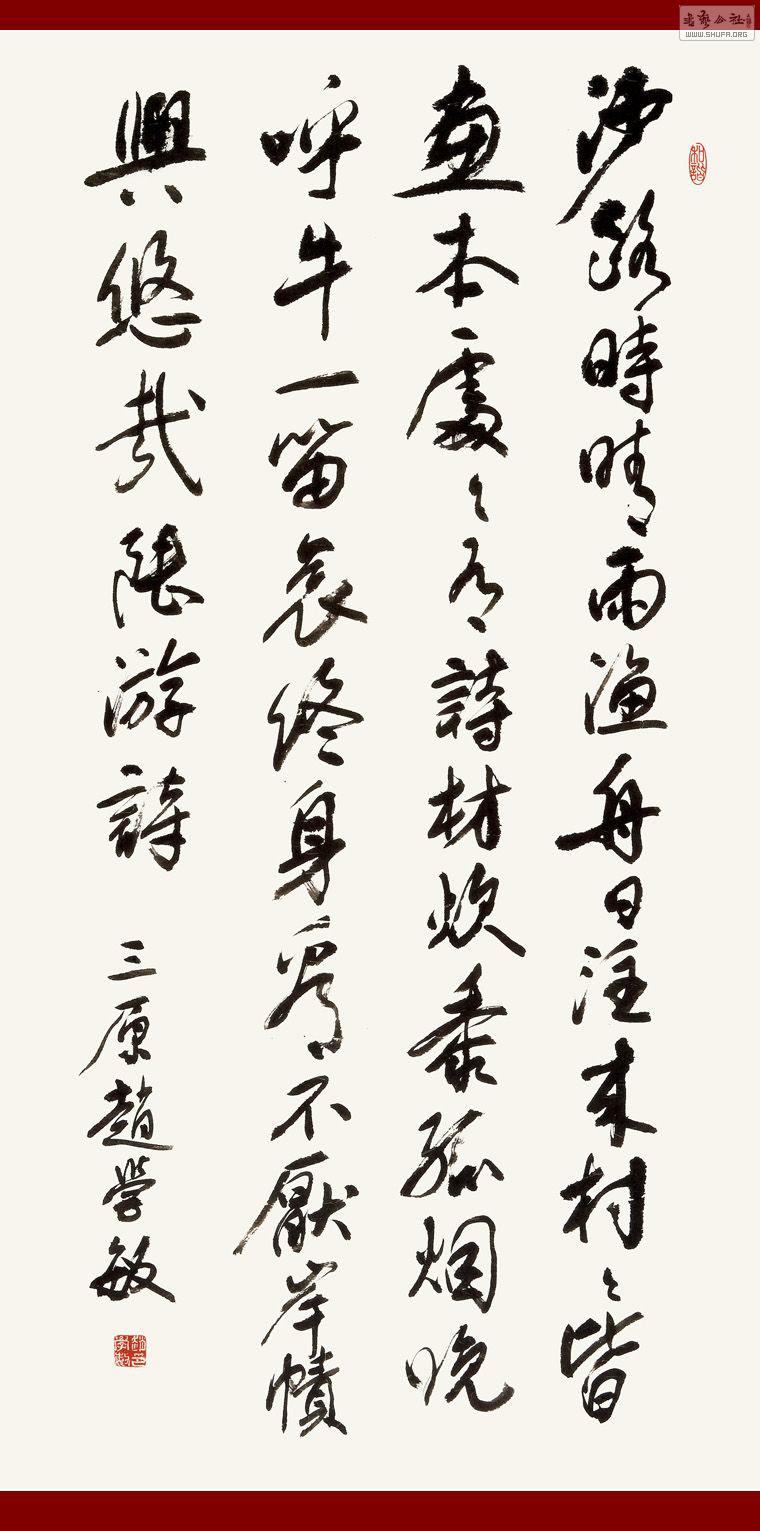 沙路時晴雨漁舟日往來村々皆
畫本處々有詩材炊黍孤烟晚
呼牛一笛哀終身看不厭岸幘
興悠哉陸游詩 三原趙學敏
和諧
書藝公社
WWW.SHUFA.ORG